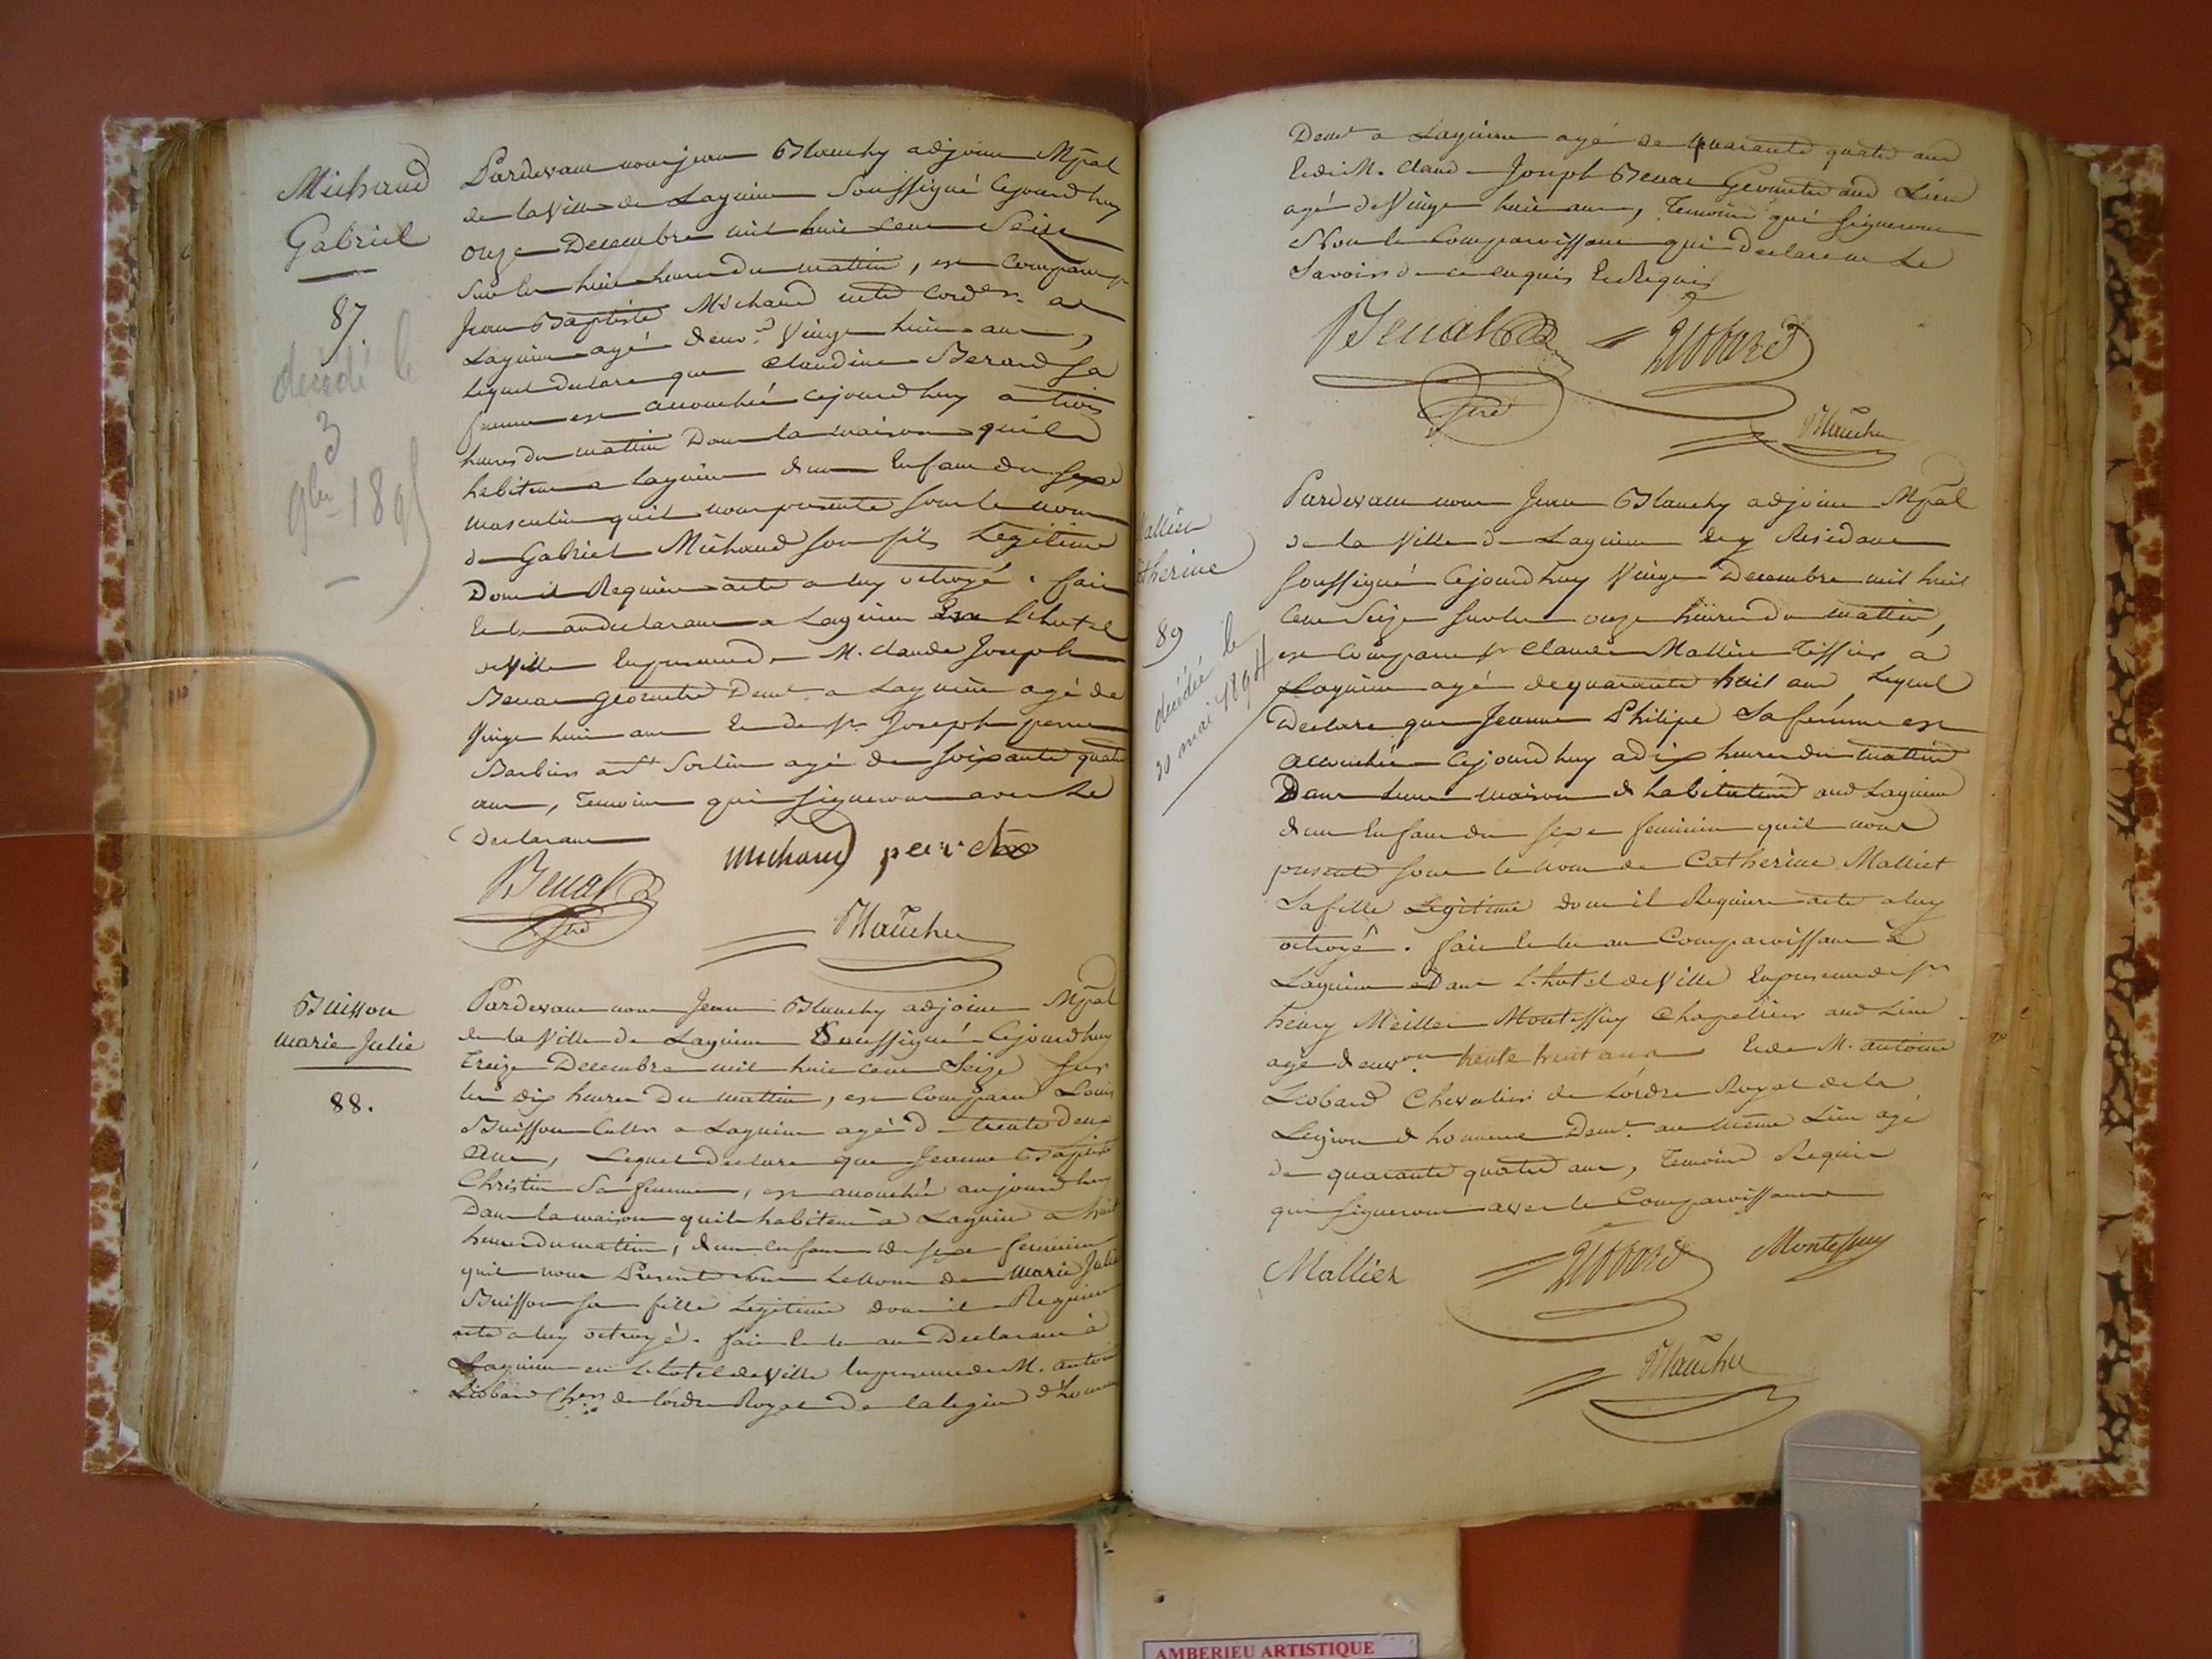 Michaud
Gabriel
87.
décédé le
3
9bre 1895
Pardevant nous jean Blanchy adjoint Mpal
de la Ville de Lagnieu Soussigné Cejourdhuy
onze Decembre mil huit cent Seize
Sur les huit heures du mattin, est Comparu sr
Jean Baptiste Michaud cord.er a
Lagnieu agé denv.on Vingt huit ans,
lequel declare que Claudine Berard Sa
femme est accouchée cejourdhuy a trois
heures du mattin Dans la maison quils
habitent a lagnieu dun Enfant du Sexe
masculin quil nous presente Sous le nom
de Gabriel Michaud Son fils Legitime
Dont il Requiere acte a luy octroyé. fait
lu au declarant a Lagnieu En L'hotel
de Ville En presence de M. Claude Joseph
Benat geometre Demt a Lagnieu agé de
Vingt huit ans Et de sr Joseph
Barbier agé de Soixante quatre
ans, Temoins qui Signeront avec Le
Declarant
Benat michaud
Blanchy
Buisson
Marie Julie
88.
Pardevant nous Jean Blanchy adjoint Mpal
de la Ville de Lagnieu Soussigné Cejourdhuy
treize Decembre mil huit cent Seize Sur
les dix heures Du mattin, est Comparu Louis
Buisson Cultr a Lagnieu agé de trente deux
ans, Lequel declare que Jeanne Baptiste
Christin Sa femme, est accouchée aujourdhuy
Dans la maison quils habitent à Lagnieu a huit
heures du matin, dun enfant du Sexe feminin
quil nous Presente Sous Le Nom de Marie Julie
Buisson Sa fille Legitime dont il Requiere
acte a luy octroyé. fait lu au Declarant à
Lagnieu en L'hotel de Ville En presence de M. antoine
Liobard Cher de l'ordre Royal De la legion d'honneur
Demt a Lagnieu agé de quarante quatre ans
Et de M. Claude Joseph Benat Geometre aud Lieu
agé de Vingt huit ans, Temoins qui Signeront
Non le Comparoissant qui declare ne Le
Savoir de ce enquis Et Requis
Benat Liobard
Blanchy
Mallier
Catherine
89
décédée le
30 mai 1894
Pardevant nous Jean Blanchy adjoint Mpal
de la Ville de Lagnieu y Residant
Soussigné Cejourdhuy Vingt Decembre mil huit
Cent Seize Sur les onze heures du mattin,
est Comparu sr Claude Mallier Tissier à
Lagnieu agé de quarante huit ans, Lequel
Declare que Jeanne Philipe Sa femme est
accouchée Cejourdhuy a dix heures du mattin
Dans Leur maison d habitation aud Lagnieu
dun Enfant du Sexe feminin quil nous
presente Sous le nom de Catherine Malliet
Sa fille Legitime dont il Requiere acte a luy
octroyé. fait lu au Comparoissant à
Lagnieu Dans L'hotel de Ville En presence de sr
henry Meiller Montessuy Chapellier aud Lieu
agé denv.on trente huit ans Et de M. antoine
Leobard Chevalier de L'ordre Royal de la
Legion d honneur Demt. au même Lieu agé
de quarante quatre ans, Temoins Requis
qui Signeront avec le Comparoissant
Mallier Liobard Montessuy
Blanchy
AMBERIEU ARTISTIQUE